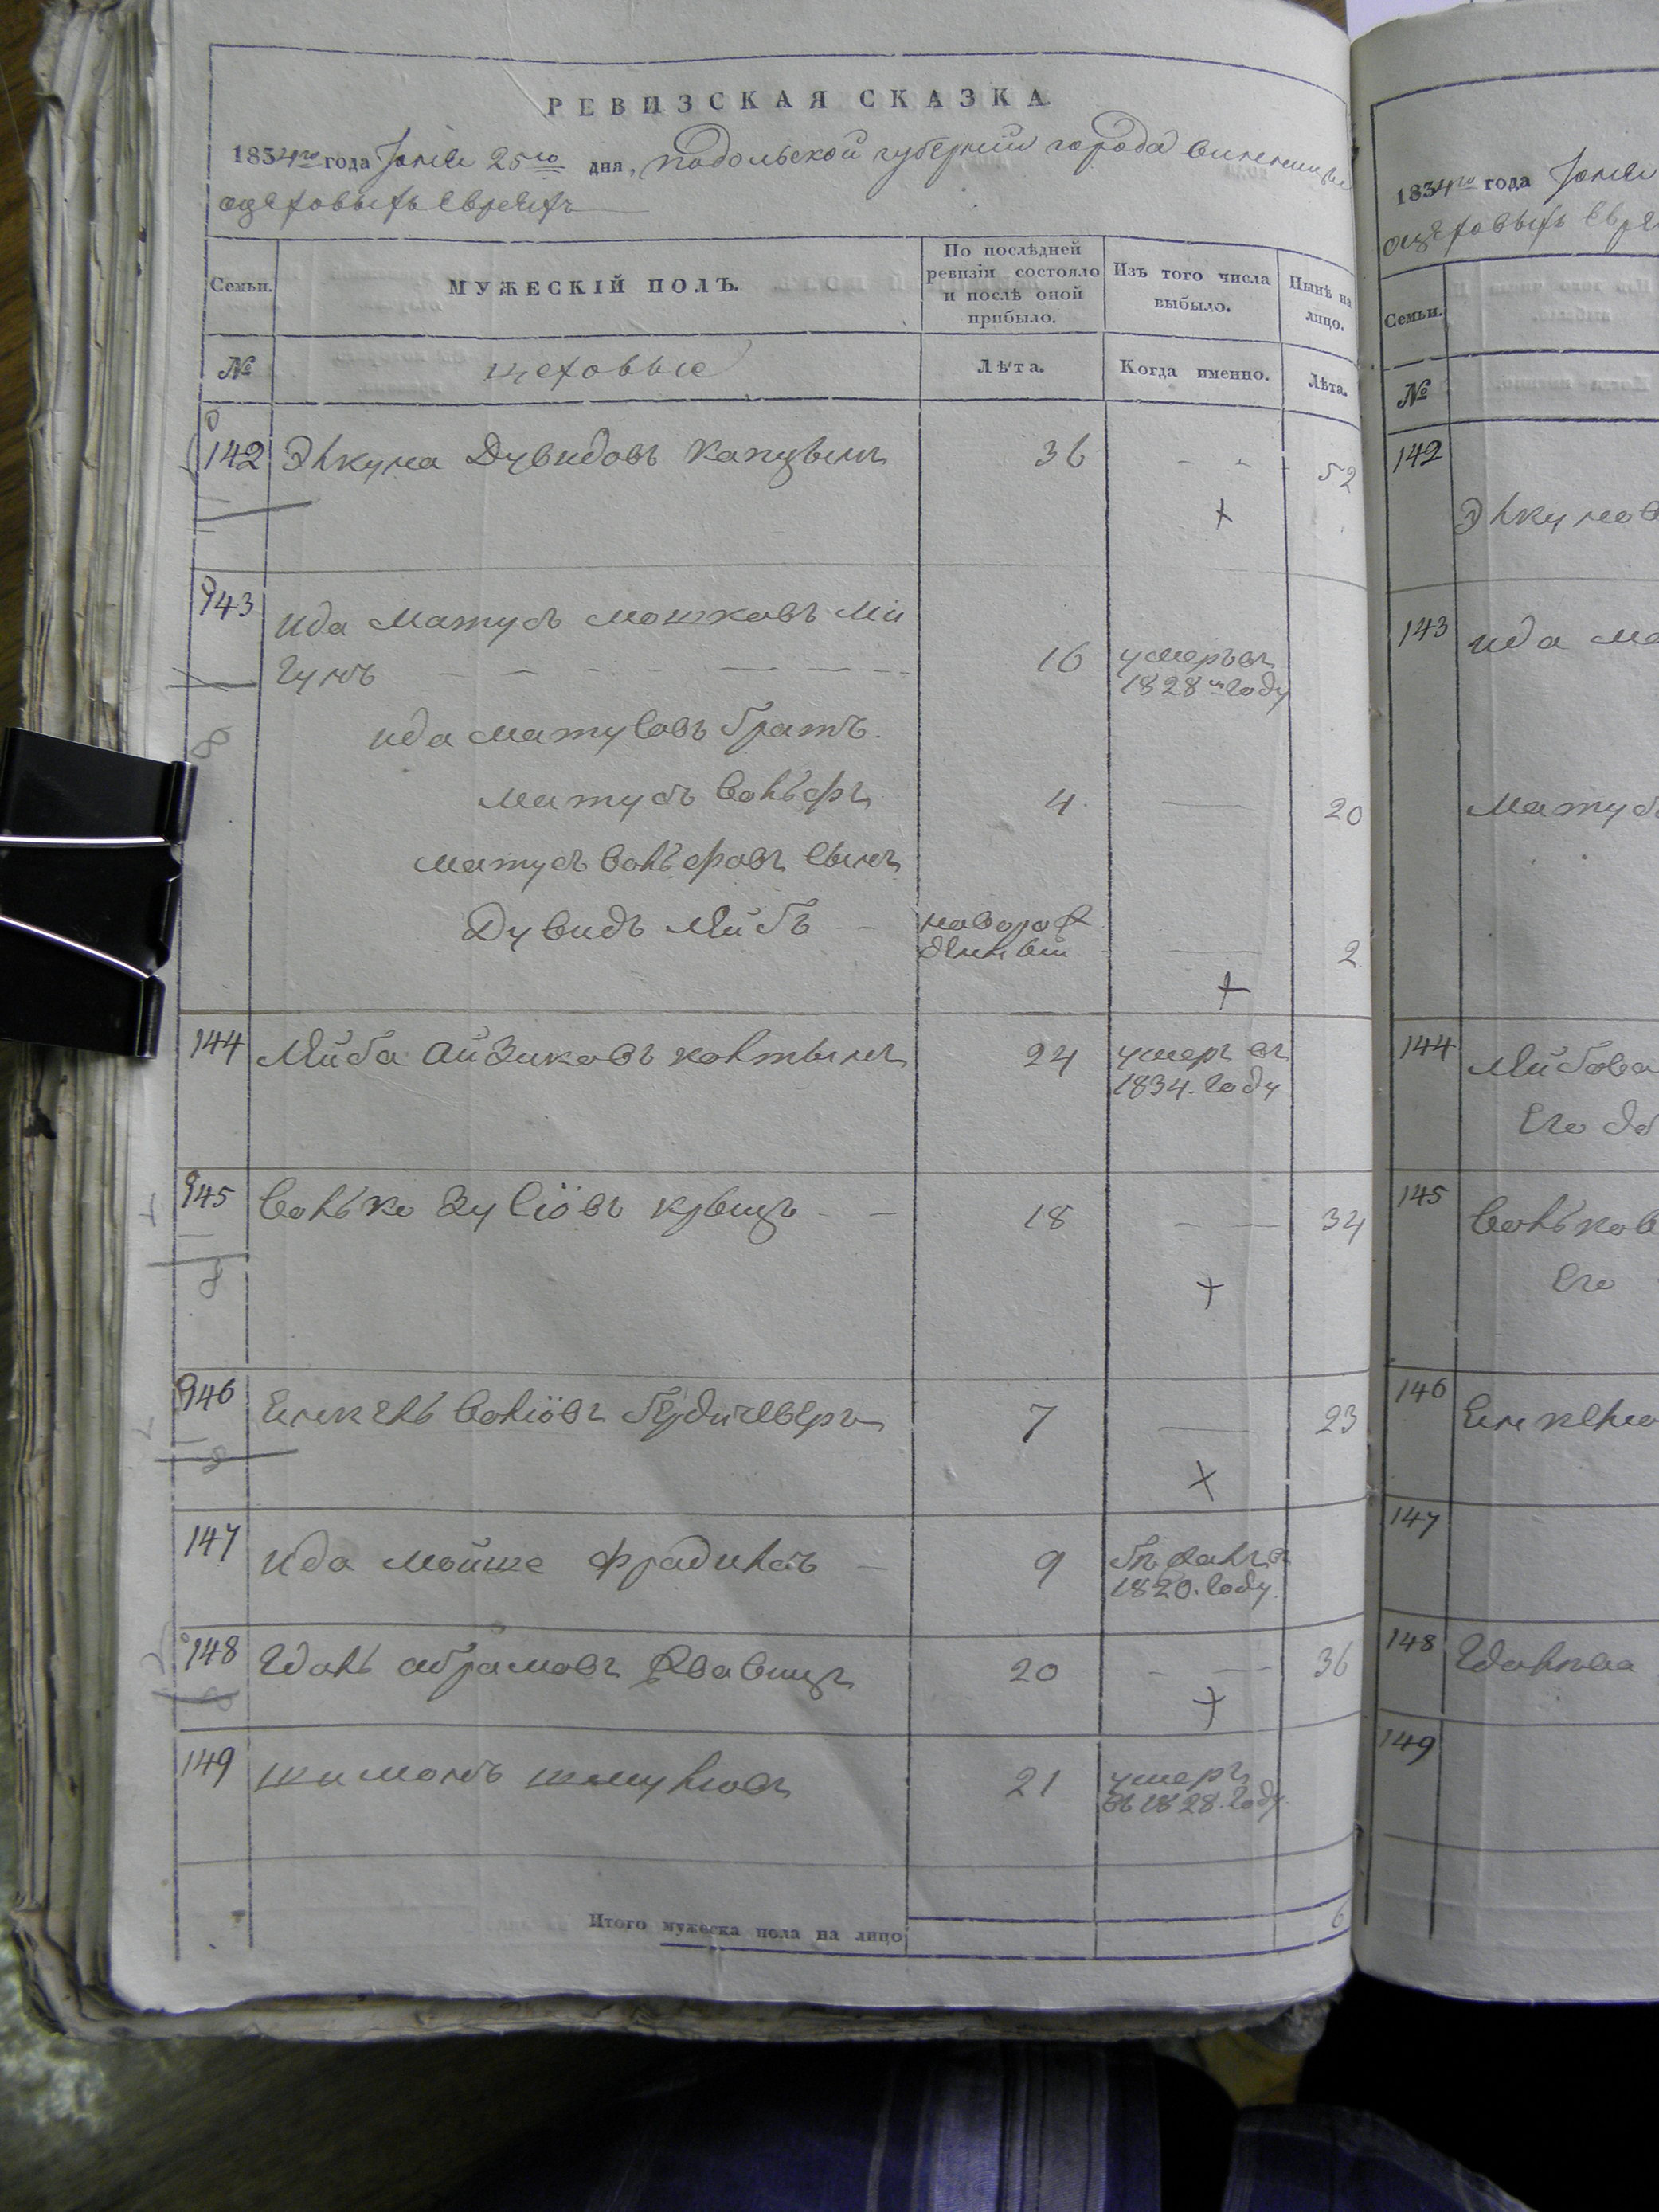 РЕВИЗСКАЯ СКАЗКА
1834го года Юнія 25го дня, подольской губерніи города винницы
о цеховыхъ евреяхъ
Семьи. МУЖЕСКІЙ ПОЛЪ. По послѣдней ревизіи состояло и послѣ оной прибыло. Изъ того числа выбыло. Нынѣ на лицо.
№ цеховые Лѣта. Когда именно. Лѣта.
142 Элкуна Дувидовъ Капцынъ 36 - - 52
143 ида Матусъ мошковъ
16 умеръ въ
1828мъ году
ида матусовъ братъ
матусъ волъфъ 4 — 20
матусъ волъфовъ сынъ
Дувидъ Лейбъ - новорож
денный — 2
144 Лейба Айзиковъ колтынъ 24 умеръ въ
1834. году
145 Волько Зусіовъ - - 18 - - 34
146 Енкель Воліовъ бердичеверъ 7 — 23
147 ида мойше - 9 бѣжалъ въ
1820. году
148 абрамовъ 20 - - 36
149 шимонъ шмулiовъ 21 умеръ
въ 1828. году
Итого мужеска пола на лицо 6
1834го года Юнія
о цеховыхъ евре
Семьи.
№
142
Элкунов
143 ида ма
Матусъ
144 Лейбова
Его
145 Вольков
Его
146
147
148
149